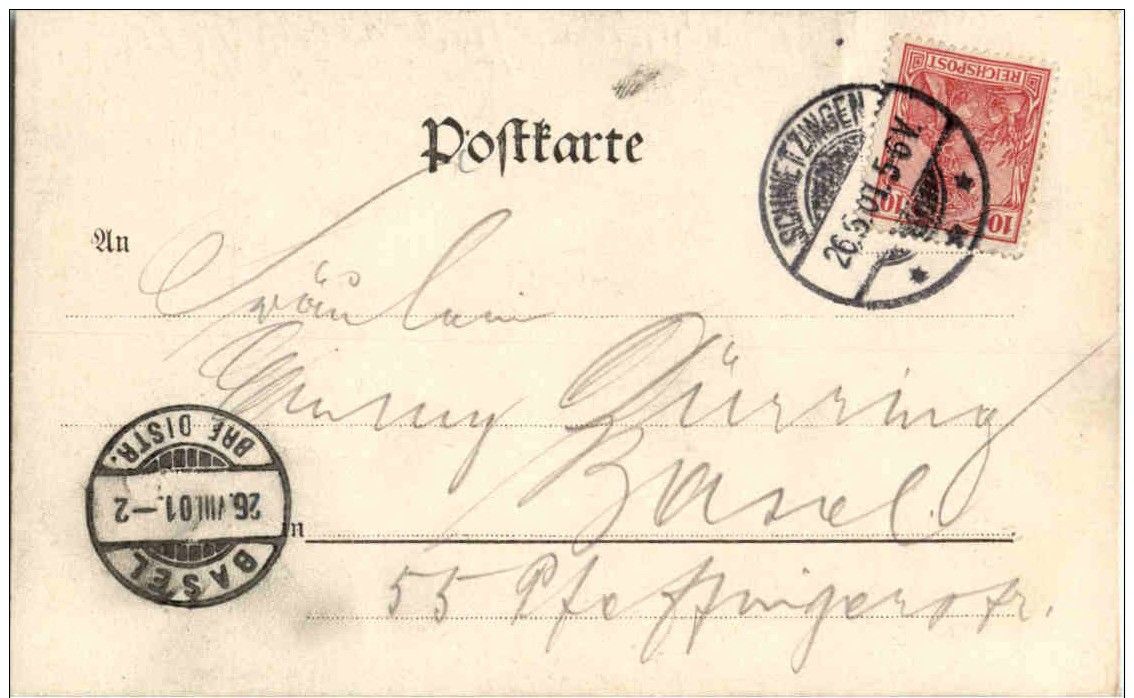 REICHSPOST
10 10
SCHWETZINGEN
26.8.01.5-6V.
Postkarte
An
Fräulein
Dürring
in Basel.
55 Pfeffingerstr.
BASEL
26.VIII.01.–2
BRF DISTR.